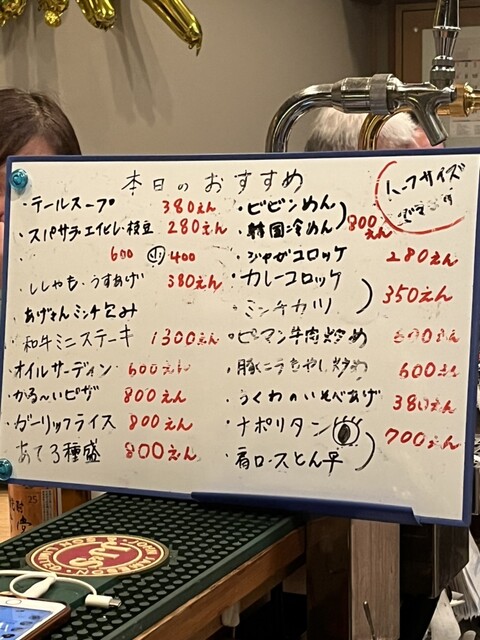 本日のおすすめ
・テールスープ 380えん
・スパサラ・エイヒレ・枝豆 280えん
600 小 400
・ししゃも・うすあげ 380えん
・あげぎょうざ
・和牛ミニステーキ 1300えん
・オイルサーディン 600えん
・かる〜いピザ 800えん
・ガーリックライス 800えん
・あて3種盛 800えん
・ビビンめん
・韓国冷めん
800えん
ハーフサイズ
・ジャガコロッケ 280えん
・カレーコロッケ
・ミンチカツ
350えん
・ピーマン牛肉炒め 600えん
・豚ニラもやし炒め 600えん
・ちくわのいそべあげ 380えん
・ナポリタン
・肩ロースとん平
700えん
25